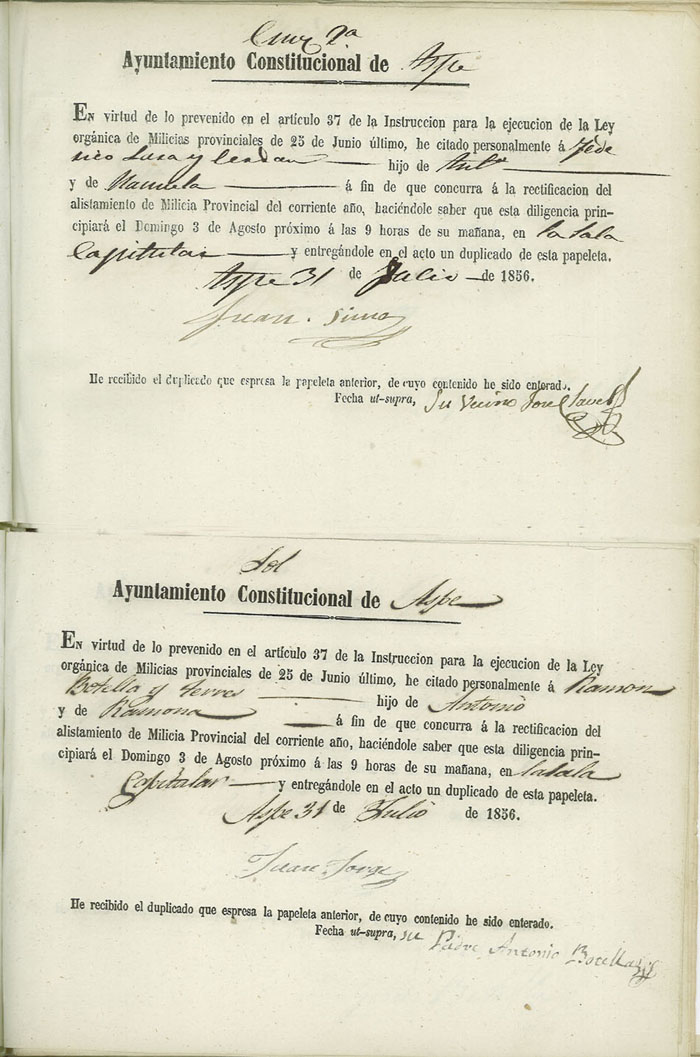 Cruz 2ª
Ayuntamiento Constitucional de Aspe
EN virtud de lo prevenido en el artículo 37 de la Instruccion para la ejecucion de la Ley
orgánica de Milicias provinciales de 25 de Junio último, he citado personalmente á Fede
rico y hijo de Antº
y de Manuela á fin de que concurra á la rectificacion del
alistamiento de Milicia Provincial del corriente año, haciéndole saber que esta diligencia prin-
cipiará el Domingo 3 de Agosto próximo á las 9 horas de su mañana, en la sala
Capitular y entregándole en el acto un duplicado de esta papeleta.
Aspe 31 de Julio de 1856.
Juan
He recibido el duplicado que espresa la papeleta anterior, de cuyo contenido he sido enterado.
Fecha ut-supra, Su Vecino José
Sol
Ayuntamiento Constitucional de Aspe
EN virtud de lo prevenido en el artículo 37 de la Instruccion para la ejecucion de la Ley
orgánica de Milicias provinciales de 25 de Junio último, he citado personalmente á Ramon
Botella y Ferres hijo de Antonio
y de Ramona á fin de que concurra á la rectificacion del
alistamiento de Milicia Provincial del corriente año, haciéndole saber que esta diligencia prin-
cipiará el Domingo 3 de Agosto próximo á las 9 horas de su mañana, en la sala
Capitular y entregándole en el acto un duplicado de esta papeleta.
Aspe 31 de Julio de 1856.
Juan Jorge
He recibido el duplicado que espresa la papeleta anterior, de cuyo contenido he sido enterado.
Fecha ut-supra, su Padre Antonio Botella